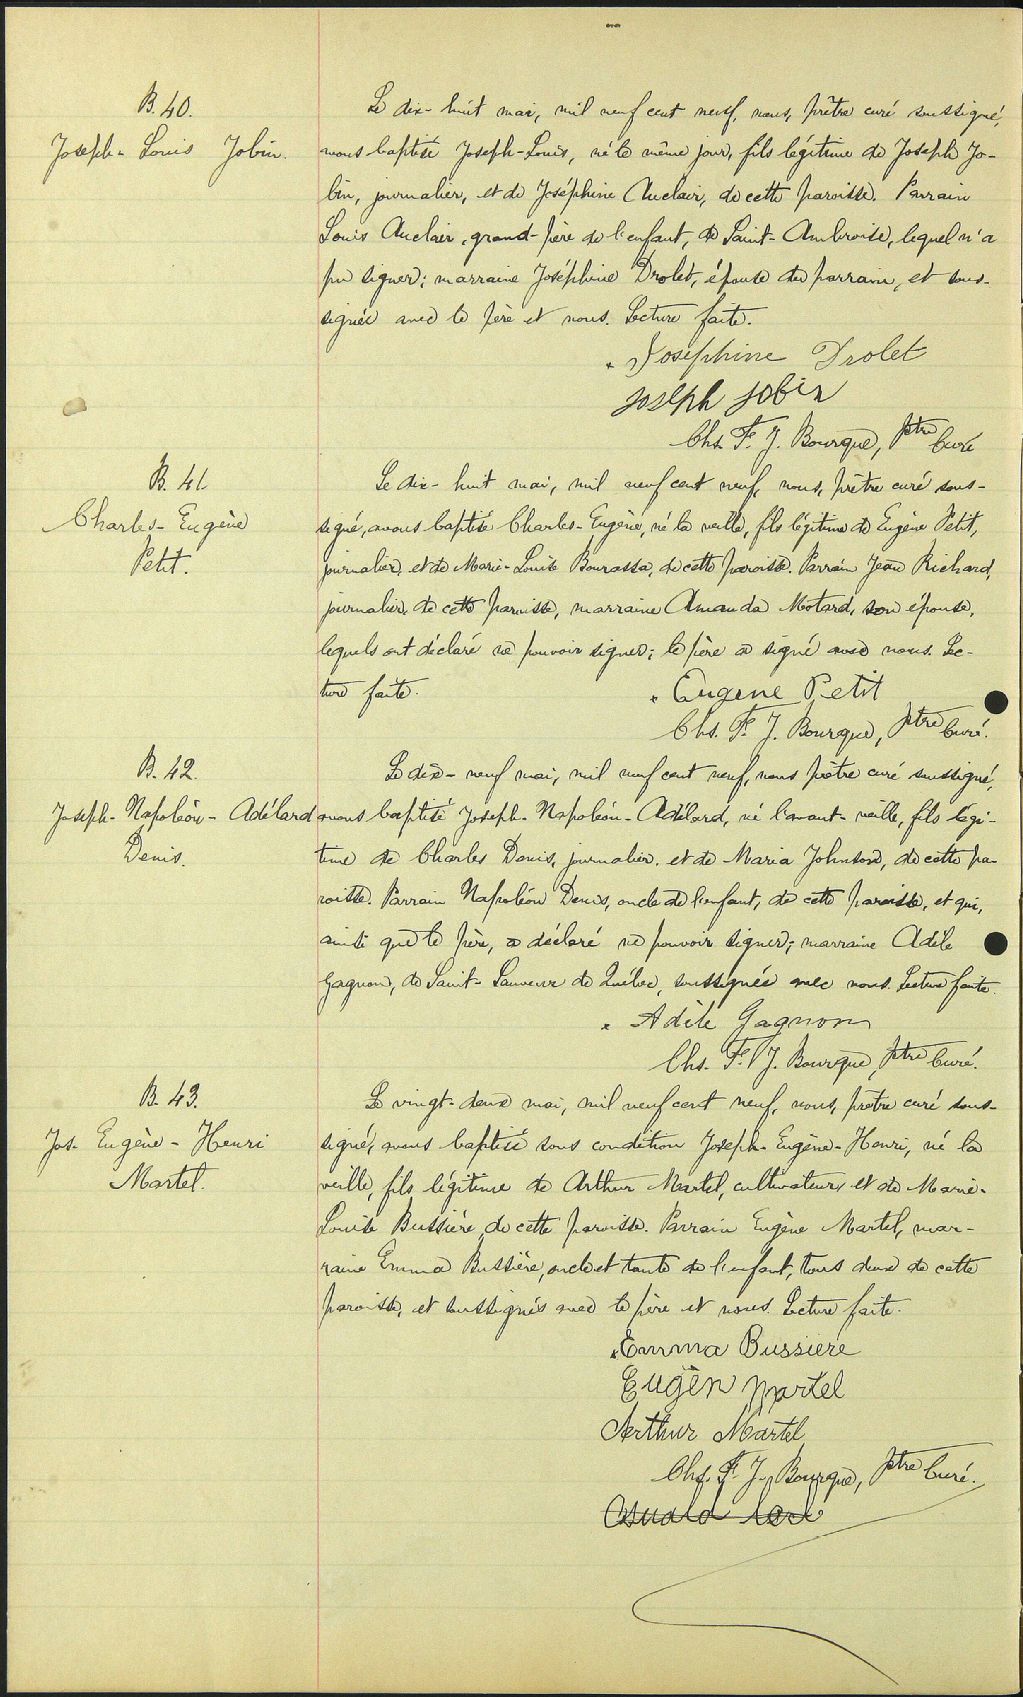 B. 40.
Joseph-Louis Jobin.
Le dix-huit mai, mil neuf cent neuf, nous, prêtre curé soussigné,
avons baptisé Joseph-Louis, né le même jour, fils légitime de Joseph Jo-
bin, journalier, et de Joséphine Auclair, de cette paroisse. Parrain
Louis Auclair, grand-père de l'enfant, de Saint-Ambroise, lequel n'a
pu signer; marraine Joséphine Drolet, épouse du parrain, et sous-
signée avec le père et nous. Lecture faite.
Joséphine Drolet
Joseph Jobin
Chs. F. J. Bourque, ptre Curé
B. 41
Charles-Eugène
Petit.
Le dix-huit mai, mil neuf cent neuf, nous, prêtre curé sous-
signé, avons baptisé Charles-Eugène, né la veille, fils légitime de Eugène Petit,
journalier, et de Marie-Louise Bourassa, de cette paroisse. Parrain Jean Richard,
journalier, de cette paroisse, marraine Amanda Motard, son épouse,
lequels ont déclaré ne pouvoir signer; le père a signé avec nous. Lec-
ture faite.
Eugene Petit
Chs. F. J. Bourque, ptre Curé.
B. 42.
Joseph-Napoléon-Adélard
Denis.
Le dix-neuf mai, mil neuf cent neuf, nous prêtre curé soussigné,
avons baptisé Joseph-Napoléon-Adélard, né l'avant-veille, fils légi-
time de Charles Denis, journalier, et de Maria Johnson, de cette pa-
roisse. Parrain Napoléon Denis, oncle de l'enfant, de cette paroisse, et qui,
ainsi que le père, a déclaré ne pouvoir signer; marraine Adèle
Gagnon, de Saint-Sauveur de Québec, soussignée avec nous. Lecture faite.
Adèle Gagnon
Chs. F. J. Bourque, ptre Curé.
B. 43.
Jos. Eugène-Henri
Martel.
Le vingt-deux mai, mil neuf cent neuf, nous, prêtre curé sous-
signé, avons baptisé sous condition Joseph-Eugène-Henri, né la
veille, fils légitime de Arthur Martel, cultivateur, et de Marie-
Louise Bussière, de cette paroisse. Parrain Eugène Martel, mar-
raine Emma Bussière, oncle et tante de l'enfant, tous deux de cette
paroisse, et soussignés avec le père et nous. Lecture faite.
Emma Bussiere
Eugèn Martel
Arthur Martel
Chs. F. J. Bourque, ptre Curé.